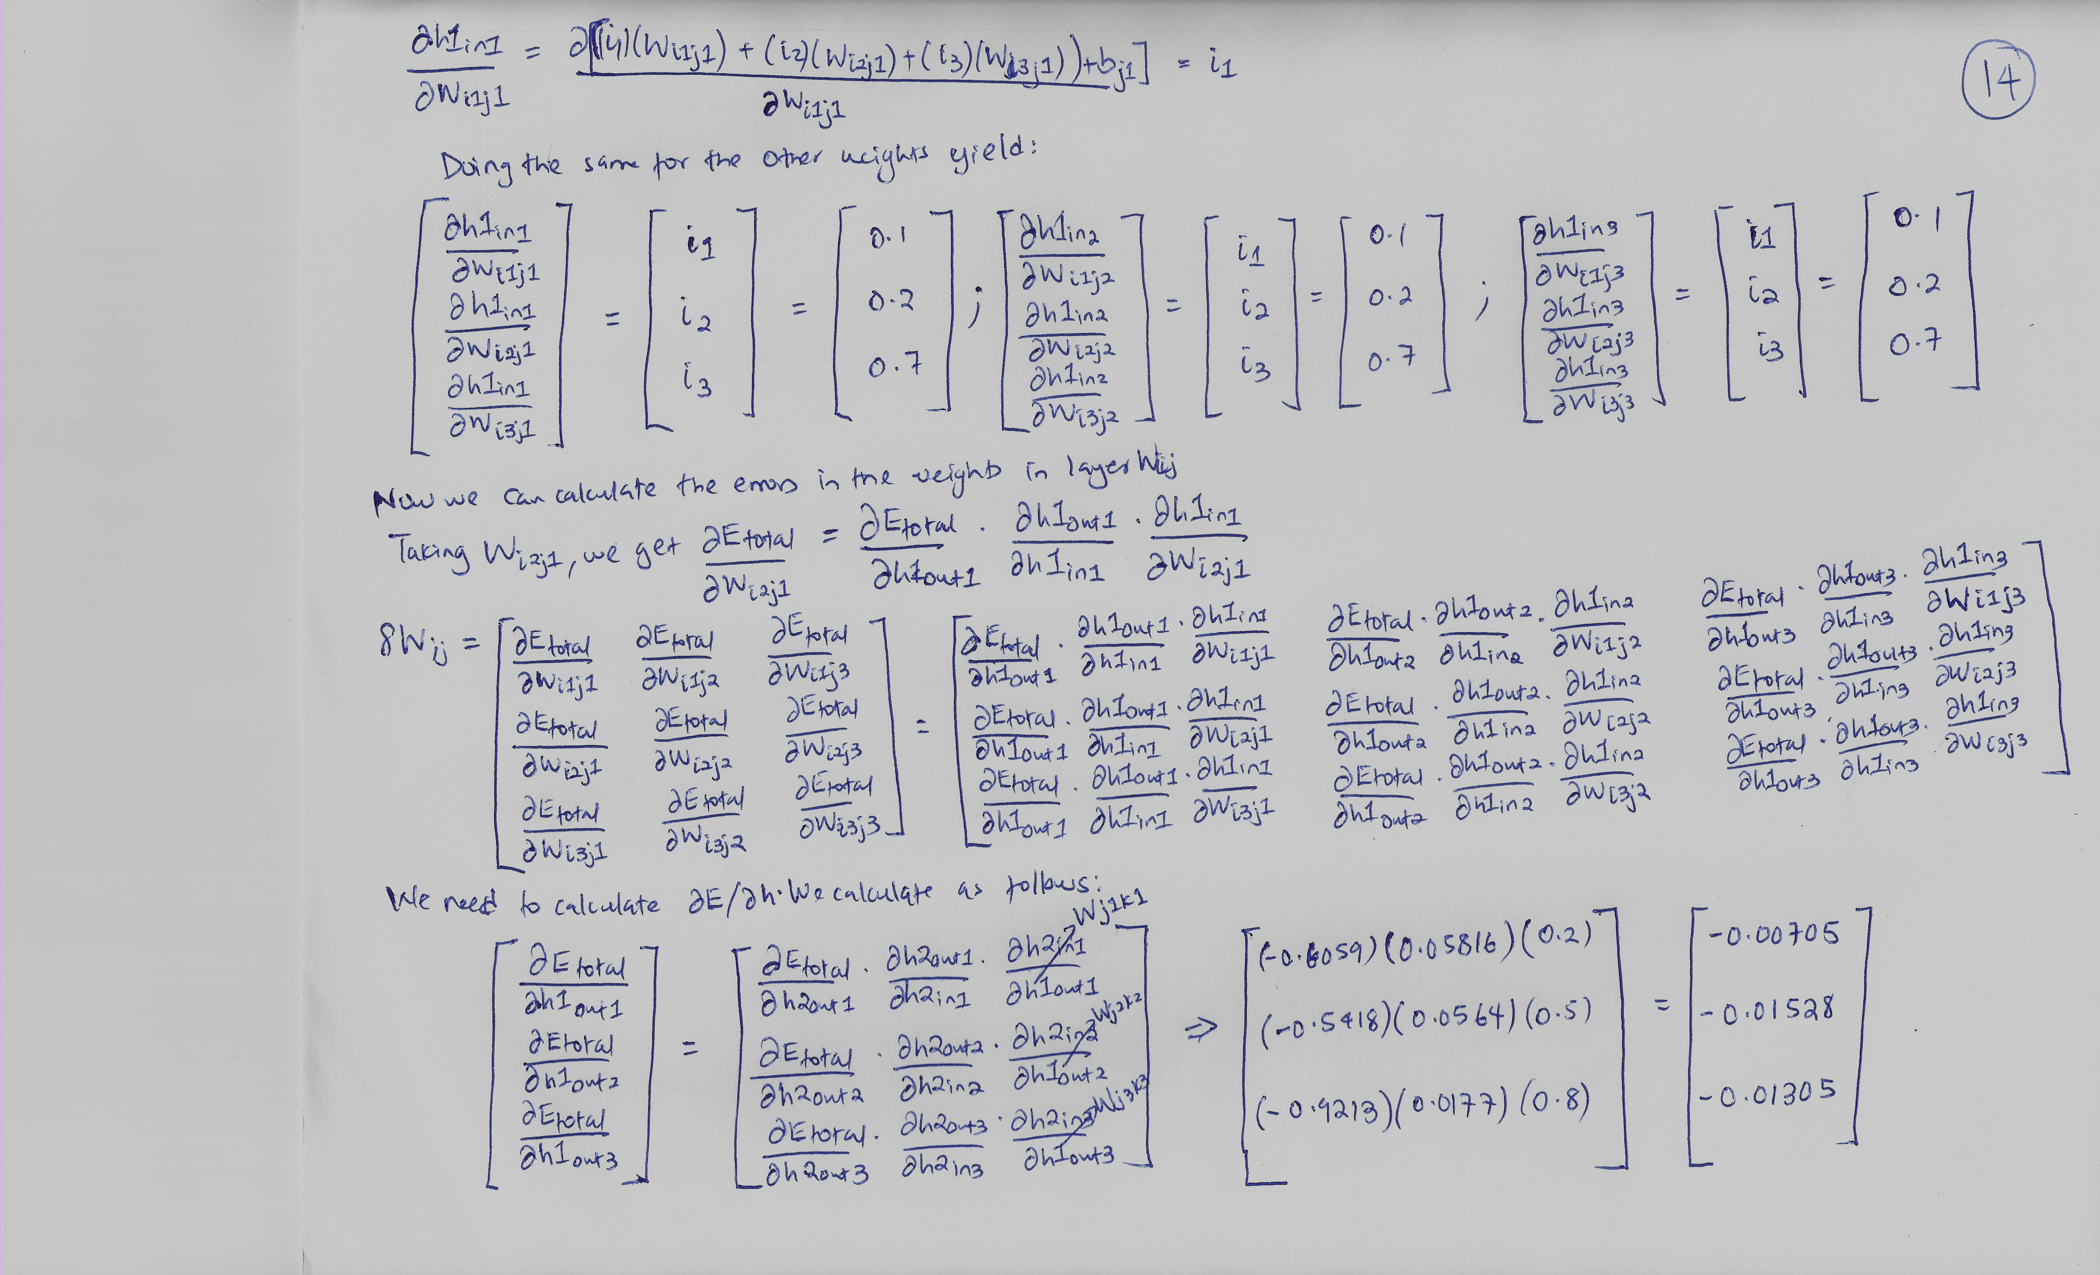 ∂h1in1/∂Wi1j1 = ∂[(i1)(Wi1j1) + (i2)(Wi2j1) + (i3)(Wi3j1))+bj1]/∂Wi1j1 = i1
14
Doing the same for the other weights yield:
[∂h1in1/∂Wi1j1 ∂h1in1/∂Wi2j1 ∂h1in1/∂Wi3j1] = [i1 i2 i3] = [0.1 0.2 0.7] ; [∂h1in2/∂Wi1j2 ∂h1in2/∂Wi2j2 ∂h1in2/∂Wi3j2] = [i1 i2 i3] = [0.1 0.2 0.7] ; [∂h1in3/∂Wi1j3 ∂h1in3/∂Wi2j3 ∂h1in3/∂Wi3j3] = [i1 i2 i3] = [0.1 0.2 0.7]
Now we can calculate the errors in the weights in layer Wij
Taking Wi2j1, we get ∂Etotal/∂Wi2j1 = ∂Etotal/∂h1out1 · ∂h1out1/∂h1in1 · ∂h1in1/∂Wi2j1
δWij = [∂Etotal/∂Wi1j1 ∂Etotal/∂Wi1j2 ∂Etotal/∂Wi1j3
∂Etotal/∂Wi2j1 ∂Etotal/∂Wi2j2 ∂Etotal/∂Wi2j3
∂Etotal/∂Wi3j1 ∂Etotal/∂Wi3j2 ∂Etotal/∂Wi3j3]
= [∂Etotal/∂h1out1 · ∂h1out1/∂h1in1 · ∂h1in1/∂Wi1j1 ∂Etotal/∂h1out2 · ∂h1out2/∂h1in2 · ∂h1in2/∂Wi1j2 ∂Etotal/∂h1out3 · ∂h1out3/∂h1in3 · ∂h1in3/∂Wi1j3
∂Etotal/∂h1out1 · ∂h1out1/∂h1in1 · ∂h1in1/∂Wi2j1 ∂Etotal/∂h1out2 · ∂h1out2/∂h1in2 · ∂h1in2/∂Wi2j2 ∂Etotal/∂h1out3 · ∂h1out3/∂h1in3 · ∂h1in3/∂Wi2j3
∂Etotal/∂h1out1 · ∂h1out1/∂h1in1 · ∂h1in1/∂Wi3j1 ∂Etotal/∂h1out2 · ∂h1out2/∂h1in2 · ∂h1in2/∂Wi3j2 ∂Etotal/∂h1out3 · ∂h1out3/∂h1in3 · ∂h1in3/∂Wi3j3]
We need to calculate ∂E/∂h. We calculate as follows:
[∂Etotal/∂h1out1 = [∂Etotal/∂h2out1 · ∂h2out1/∂h2in1 · ∂h2in1/∂h1out1 Wj1k1 ⇒ [(-0.6059)(0.05816)(0.2) = [-0.00705
∂Etotal/∂h1out2 ∂Etotal/∂h2out2 · ∂h2out2/∂h2in2 · ∂h2in2/∂h1out2 Wj2k2 (-0.5418)(0.0564)(0.5) -0.01528
∂Etotal/∂h1out3] ∂Etotal/∂h2out3 · ∂h2out3/∂h2in3 · ∂h2in3/∂h1out3 Wj3k3] (-0.9213)(0.0177)(0.8)] -0.01305]